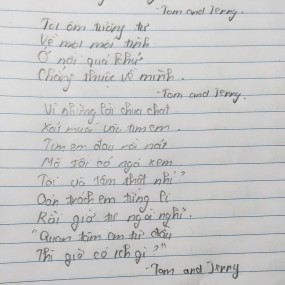 -Tom and Jerry.
Tôi ôm tương tư
Về một mối tình
Ở nơi quá khứ
Chẳng thuộc về mình.
-Tom and Jerry.
Vì những lời chua chát
Xát muối vào tim em.
Tim em đau rồi nát
Mà tôi có ngó xem
Tôi vô tâm thật nhỉ?
Oán trách em từng li
Rồi giờ tự ngồi nghĩ.
"Quan tâm em từ đầu
Thì giờ có ích gì?"
-Tom and Jerry